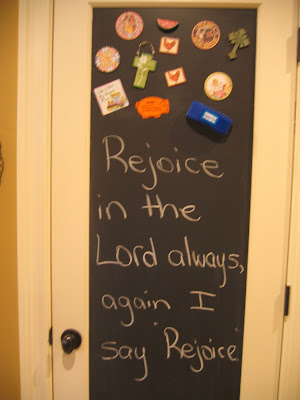 Rejoice
in the
Lord always,
again I
say Rejoice